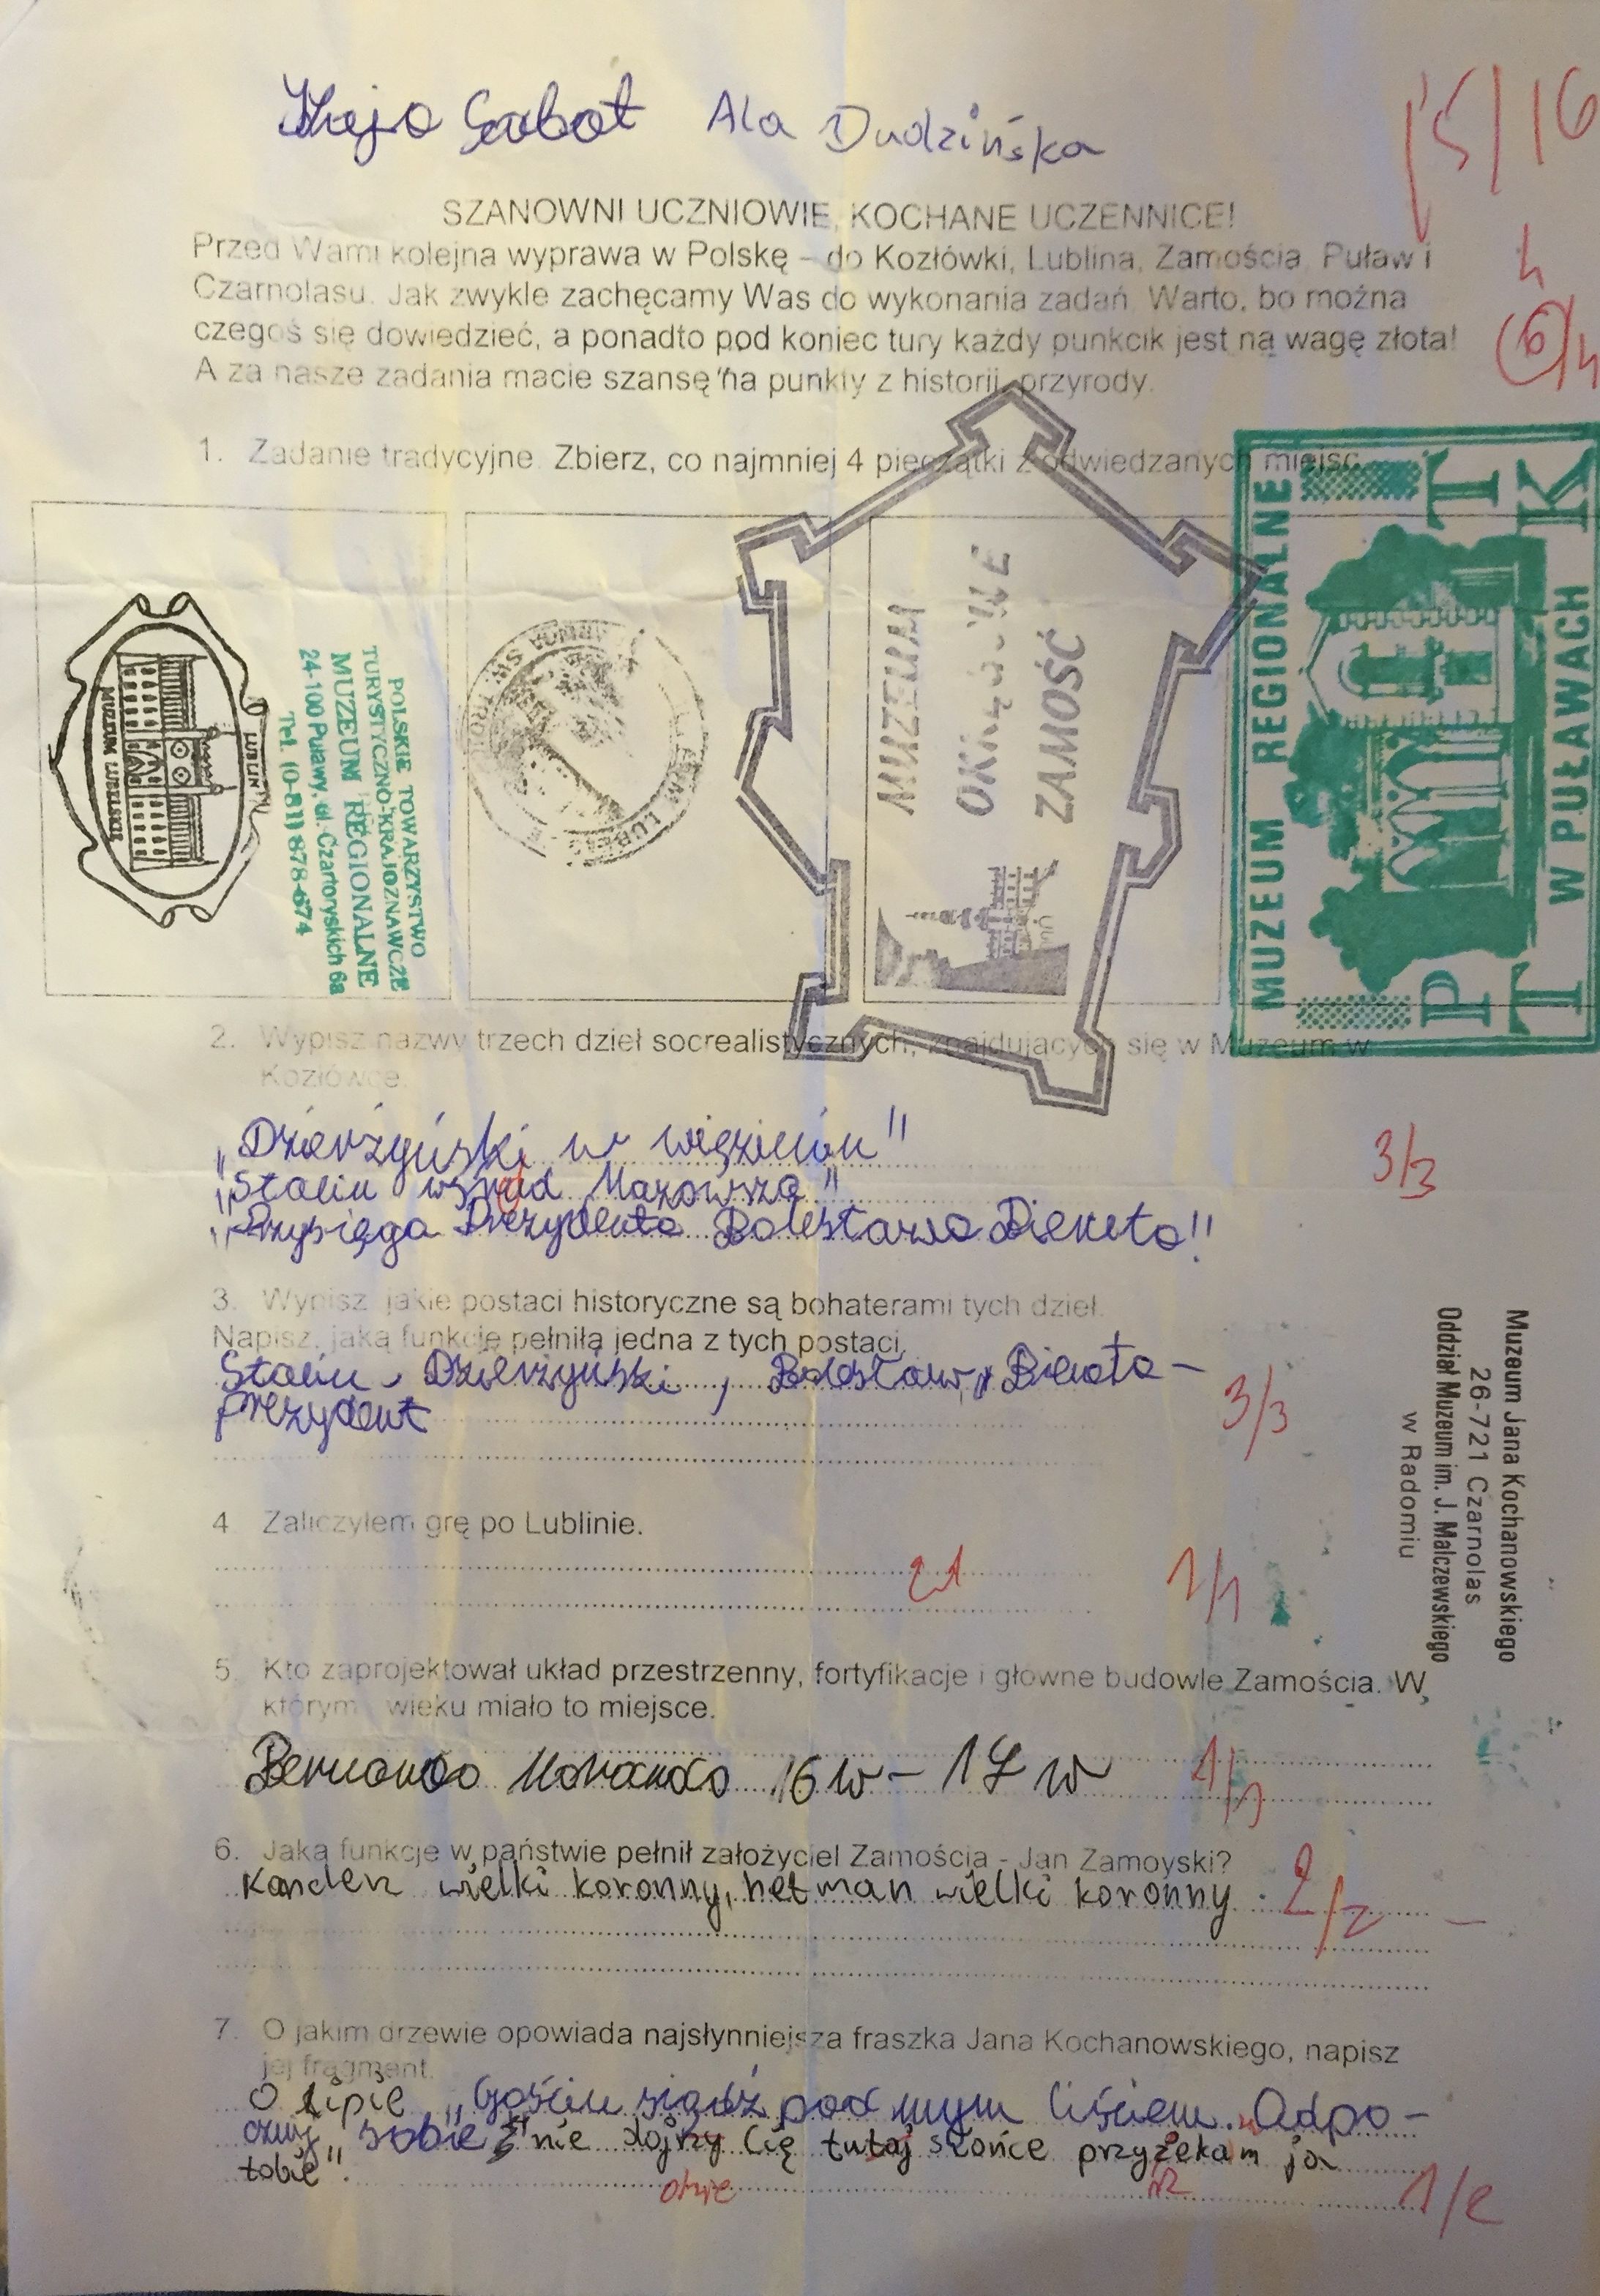 Kaja Sabot Ala Dudzińska
15/16
SZANOWNI UCZNIOWIE, KOCHANE UCZENNICE!
Przed Wami kolejna wyprawa w Polskę – do Kozłówki, Lublina, Zamościa, Puław i
Czarnolasu. Jak zwykle zachęcamy Was do wykonania zadań. Warto, bo można
czegoś się dowiedzieć, a ponadto pod koniec tury każdy punkcik jest na wagę złota!
A za nasze zadania macie szansę na punkty z historii, przyrody.
6/4
1. Zadanie tradycyjne. Zbierz, co najmniej 4 pieczątki z odwiedzanych miejsc.
LUBLIN
MUZEUM LUBELSKIE
POLSKIE TOWARZYSTWO
TURYSTYCZNO-KRAJOZNAWCZE
MUZEUM REGIONALNE
24-100 Puławy, ul. Czartoryskich 6a
Tel. (0-81) 878-674
MUZEUM
OKRĘGOWE
ZAMOŚĆ
MUZEUM REGIONALNE
PTTK
W PUŁAWACH
2. Wypisz nazwy trzech dzieł socrealistycznych, znajdujących się w Muzeum w
Kozłówce.
„Dzierżyński w więzieniu"
„Stalin wśród Mazowsza"
„Przysięga Prezydenta Bolesława Bieruta"
3/3
3. Wypisz, jakie postaci historyczne są bohaterami tych dzieł.
Napisz, jaką funkcję pełniła jedna z tych postaci.
Stalin, Dzierżyński, Bolesław Bieruta –
prezydent
3/3
Muzeum Jana Kochanowskiego
26-721 Czarnolas
Oddział Muzeum im. J. Malczewskiego
w Radomiu
4. Zaliczyłem grę po Lublinie.
1/1
5. Kto zaprojektował układ przestrzenny, fortyfikacje i głowne budowle Zamościa. W
którym wieku miało to miejsce.
Bernando Morando 16 w – 17 w
1/1
6. Jaką funkcje w państwie pełnił założyciel Zamościa - Jan Zamoyski?
Kanclerz wielki koronny, hetman wielki koronny.
2/2
7. O jakim drzewie opowiada najsłynniejsza fraszka Jana Kochanowskiego, napisz
jej fragment.
O lipie „Gościu siądź pod mym liściem. Odpo-
cznij sobie nie dojrzy Cię tutaj słońce przyżekam ja
tobie".
rz
1/2